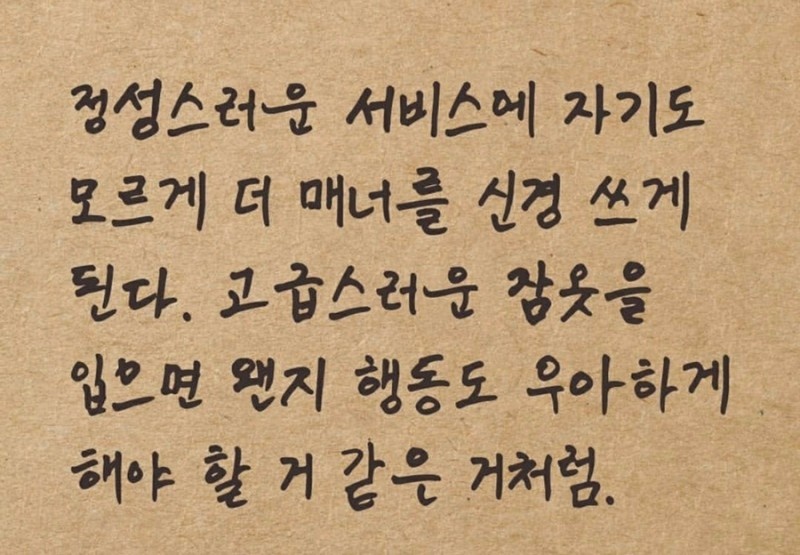 정성스러운 서비스에 자기도
모르게 더 매너를 신경 쓰게
된다. 고급스러운 잠옷을
입으면 왠지 행동도 우아하게
해야 할 거 같은 거처럼.